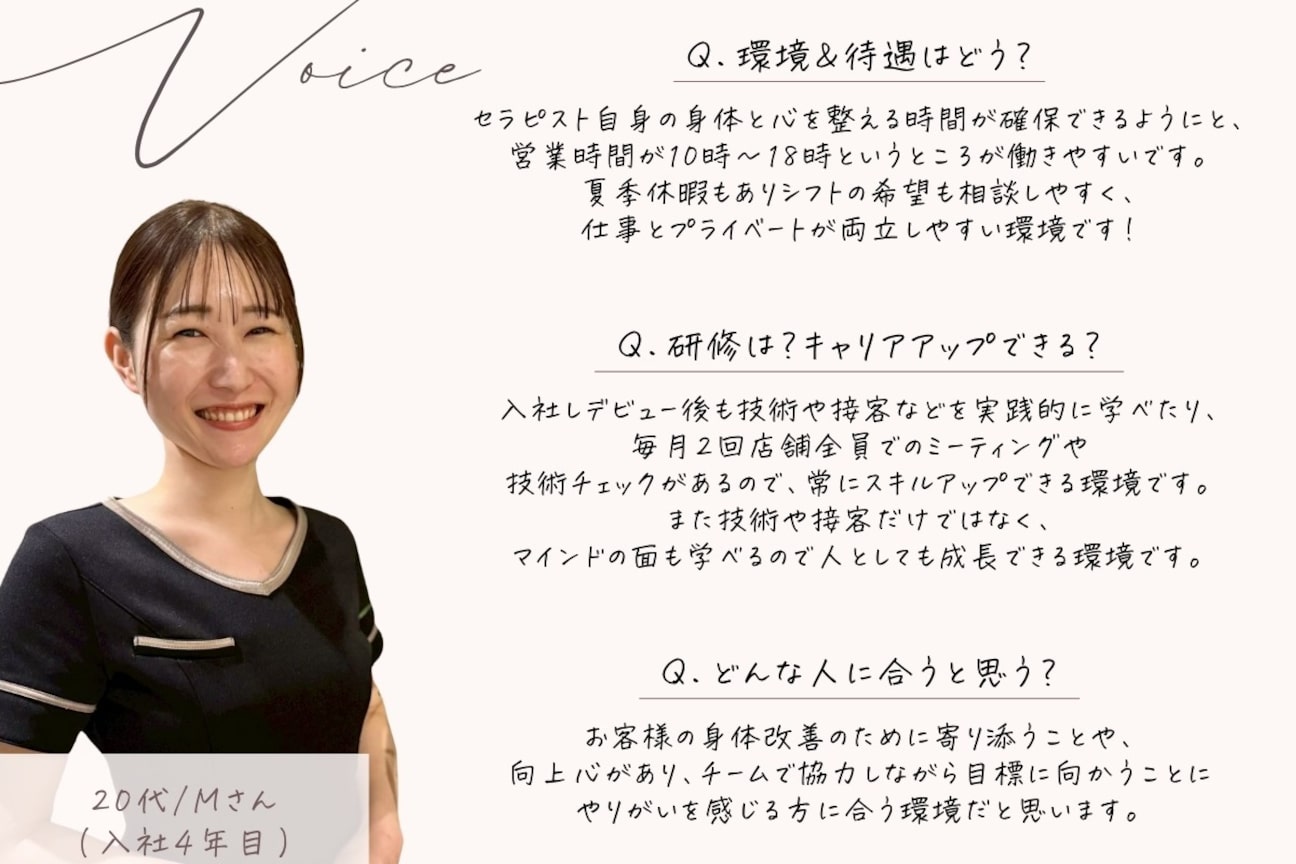 Voice
Q.環境&待遇はどう?
セラピスト自身の身体と心を整える時間が確保できるようにと、
営業時間が10時～18時というところが働きやすいです。
夏季休暇もありシフトの希望も相談しやすく、
仕事とプライベートが両立しやすい環境です!
Q.研修は?キャリアアップできる?
入社しデビュー後も技術や接客などを実践的に学べたり、
毎月2回店舗全員でのミーティングや
技術チェックがあるので、常にスキルアップできる環境です。
また技術や接客だけではなく、
マインドの面も学べるので人としても成長できる環境です。
Q.どんな人に合うと思う?
お客様の身体改善のために寄り添うことや、
向上心があり、チームで協力しながら目標に向かうことに
やりがいを感じる方に合う環境だと思います。
20代/Mさん
(入社4年目)